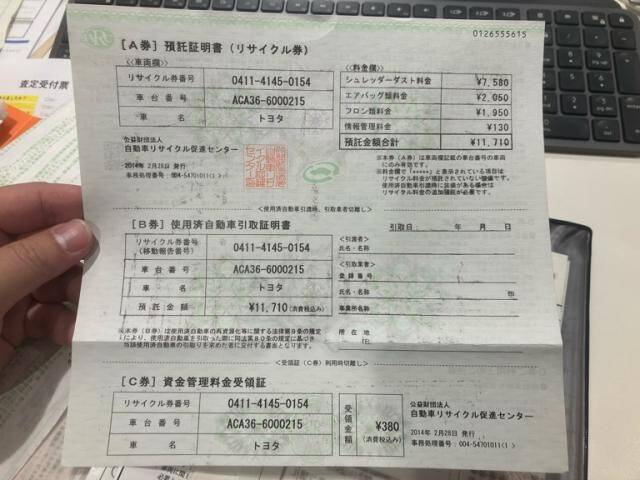 0126555615
[A券] 預託証明書（リサイクル券）
《車両欄》
リサイクル券番号 0411-4145-0154
車台番号 ACA36-6000215
車名 トヨタ
《料金欄》
シュレッダーダスト料金 ¥7,580
エアバッグ類料金 ¥2,050
フロン類料金 ¥1,950
情報管理料金 ¥130
預託金額合計 ¥11,710
公益財団法人
自動車リサイクル促進センター
2014年 2月28日 発行
事務処理番号：004-54701011(1 )
※本券（A券）は車両欄記載の車台番号の車両
にのみ有効です。
※料金欄で「*****」と表示されている項目は
リサイクル料金が預託されていない装備です。
使用済自動車引渡時に装備がある場合は
リサイクル料金の追加預託が必要です。
＜使用済自動車引渡時、引取業者切離し＞
[B券] 使用済自動車引取証明書
引取日： 年 月 日
リサイクル券番号
(移動報告番号) 0411-4145-0154
車台番号 ACA36-6000215
車名 トヨタ
預託金額 ¥11,710(消費税込み)
＜引渡者＞
氏名・名称
＜引取業者＞
登録番号
氏名・名称 印
事業所名称
所在地
(TEL )
※本券（B券）は使用済自動車の再資源化等に関する法律第9条の規定
により、使用済自動車を引取った際に同法第80条の規定に基づき
当該使用済自動車の引取りを求めた者に交付する書面となります。
＜受領証（C券）利用時切離し＞
[C券] 資金管理料金受領証
リサイクル券番号 0411-4145-0154
車台番号 ACA36-6000215
車名 トヨタ
受領金額 ¥380
(消費税込み)
公益財団法人
自動車リサイクル促進センター
2014年 2月28日 発行
事務処理番号：004-54701011(1 )
査定受付票